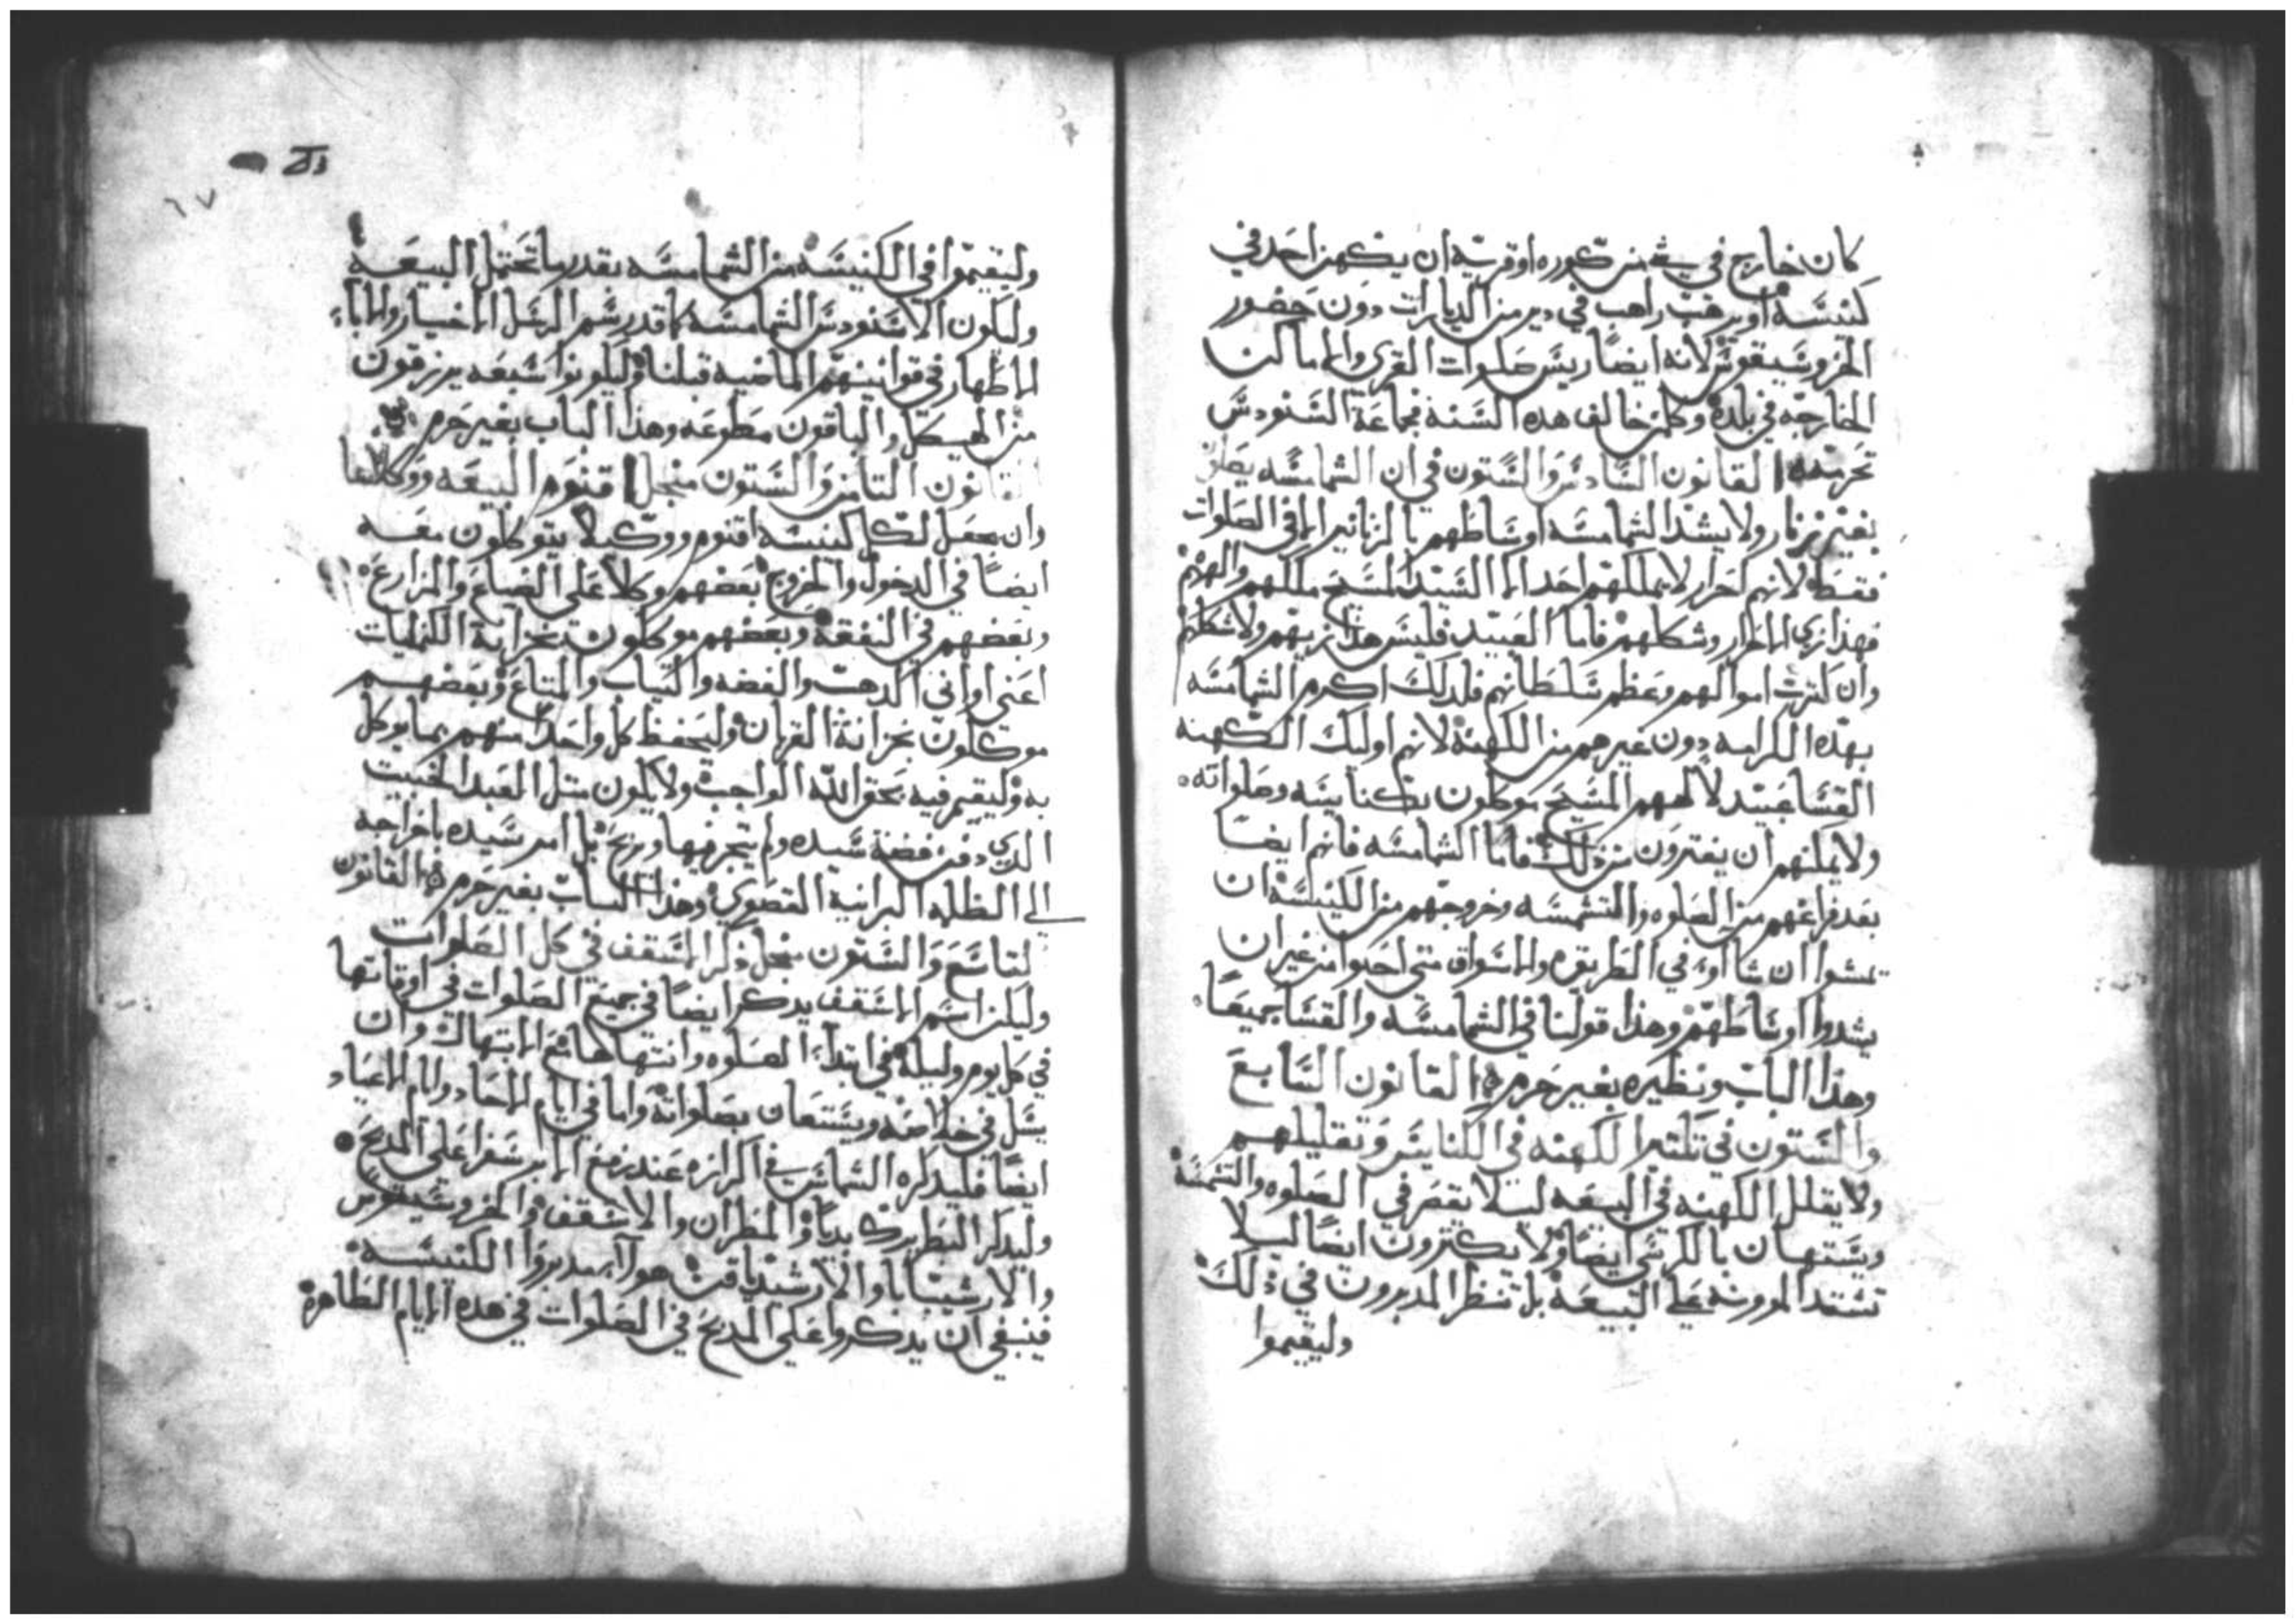 كان خارج في شي من كوره او قريه ان يكهن احد في
كنيسة او يرهب راهب في دير من الديارات دون حضور
الخروسيقوس لانه ايضا ريس صلوات القرى والاماكن
الخارجه في بلده وكلمن خالف هده السنه فجماعة السنودس
تحرمه القانون السادس والستون في ان الشمامسه
بغير زنار ولا يشد الشمامسه اوساطهم بالزنانير الا في الصلوات
فقط لانهم احرار لا يملكهم احد الا السيد المسيح ملكهم والههم
فهذا زي الاحرار وشكلهم فاما العبيد فليس هذا زيهم ولا شكلهم
وان كثرت اموالهم وعظم سلطانهم فلدلك اكرم الشمامسه
بهده الكرامه دون غيرهم من الكهنة لانهم اوليك الكهنه
القسا عبيد لالههم المسيح موكلون بكنايسه وصلواته
ولا يمكنهم ان يفترون من ذلك فاما الشمامسه فانهم ايضا
بعد فراغهم من الصلوه والتشمسه وخروجهم من الكنيسة ان
يمشوا ان شااوا في الطريق والاسواق متى احبوا من غير ان
يشدوا اوساطهم وهذا قولنا في الشمامسه والقسا جميعا
وهذا الباب ونظيره بغير حرم القانون السابع
والستون في تكتير الكهنه في الكنايس وتقليلهم
ولا يقلل الكهنه في البيعه ليلا يقصر في الصلوه والتشمسة
ويستهان بالكرسي ايضا ولا يكترون ايضا ليلا
تشتد المرونه على البيعة بل تنظر المدبرون في ذلك
وليقيموا
٦٧
وليقيموا في الكنيسه من الشمامسه بقدر ما تحتمل البيعة
وليكون الاسنودس الشمامسه كما قد رسم الرسل الاخيار والاباء
الاطهار في قوانينهم الماضيه قبلنا وليكونوا سبعه يرزقون
من الهيكل والباقون مطوعه وهذا الباب بغير حرم
القانون التامن والستون من اجل اقنوم البيعه ووكلاها
وان يجعل لكل كنيسه اقنوم ووكيلا يتوكلون معه
ايضا في الدخول والخروج بعضهم وكلا على الضياع والمزارع
وبعضهم في النفقة وبعضهم موكلون بخزانة الكنايات
اعني اواني الدهب والفضه والتياب والمتاع وبعضهم
موكلون بخزانة القربان وليحفظ كل واحد منهم بما يوكل
به وليقيم فيه بحق الله الواجب ولا يكون متل العبد الخبيت
الدي دفن فضة سيده ولم يتجر فيها ويربح بل امر سيده باخراجه
الى الظلمه البرانية القصوى وهذا الباب بغير حرم القانون
التاسع والستون من اجل ذكر الاسقف في كل الصلوات
وليكن اسم الاسقف يدكر ايضا في جميع الصلوات في اوقاتها
في كل يوم وليلة في ابتداء الصلوه وانتهاها مع الابتهال وان
يسل في خلاصه ويستعان بصلواته واما في ايام الاحاد وايام الاعياد
ايضا فليدكره الشماس في الكرازه عند رفع الابرسفرا على المدبح
وليدكر البطريرك بديا والمطران والاسقف والخروسيقوس
والارشيبابا والارشيدياقن هولاء مدبروا الكنيسه
فينبغي ان يدكروا على المدبح في الصلوات في هده الايام الطاهرة